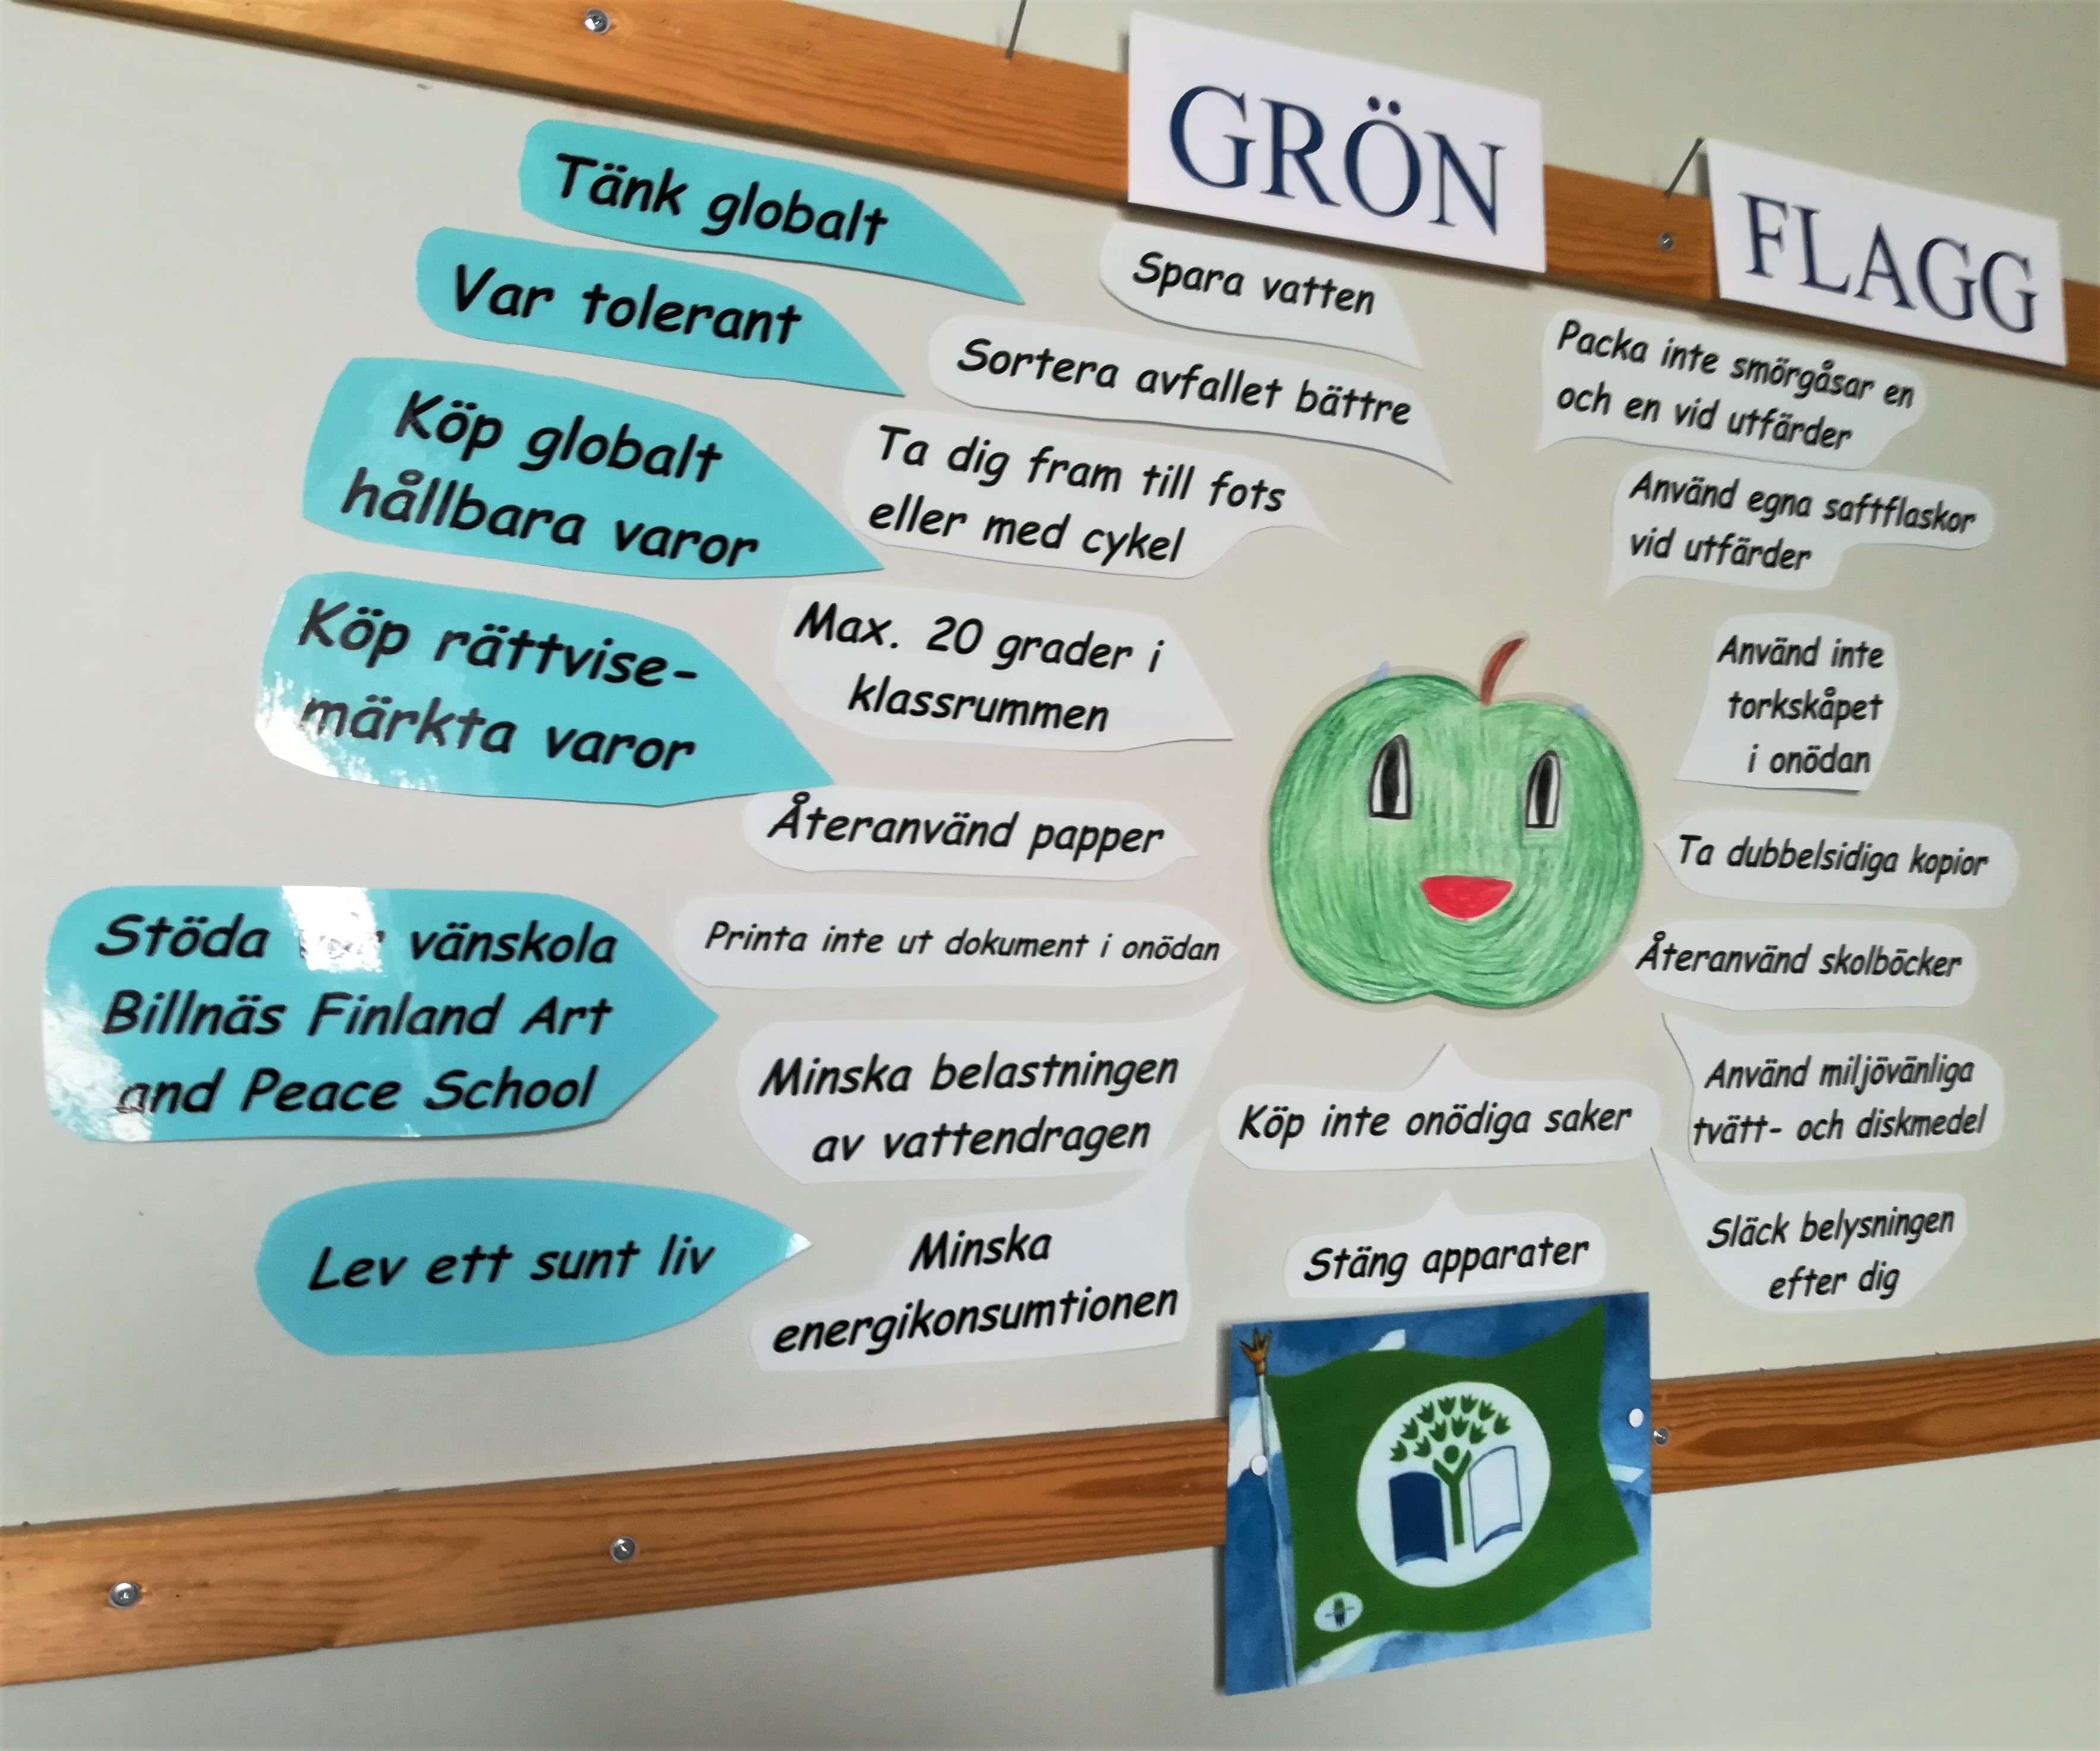 GRÖN
FLAGG
Tänk globalt
Var tolerant
Köp globalt
hållbara varor
Köp rättvise-
märkta varor
Stöda vänskola
Billnäs Finland Art
and Peace School
Lev ett sunt liv
Spara vatten
Sortera avfallet bättre
Ta dig fram till fots
eller med cykel
Max. 20 grader i
klassrummen
Återanvänd papper
Printa inte ut dokument i onödan
Minska belastningen
av vattendragen
Minska
energikonsumtionen
Köp inte onödiga saker
Stäng apparater
Packa inte smörgåsar en
och en vid utfärder
Använd egna saftflaskor
vid utfärder
Använd inte
torkskåpet
i onödan
Ta dubbelsidiga kopior
Återanvänd skolböcker
Använd miljövänliga
tvätt- och diskmedel
Släck belysningen
efter dig